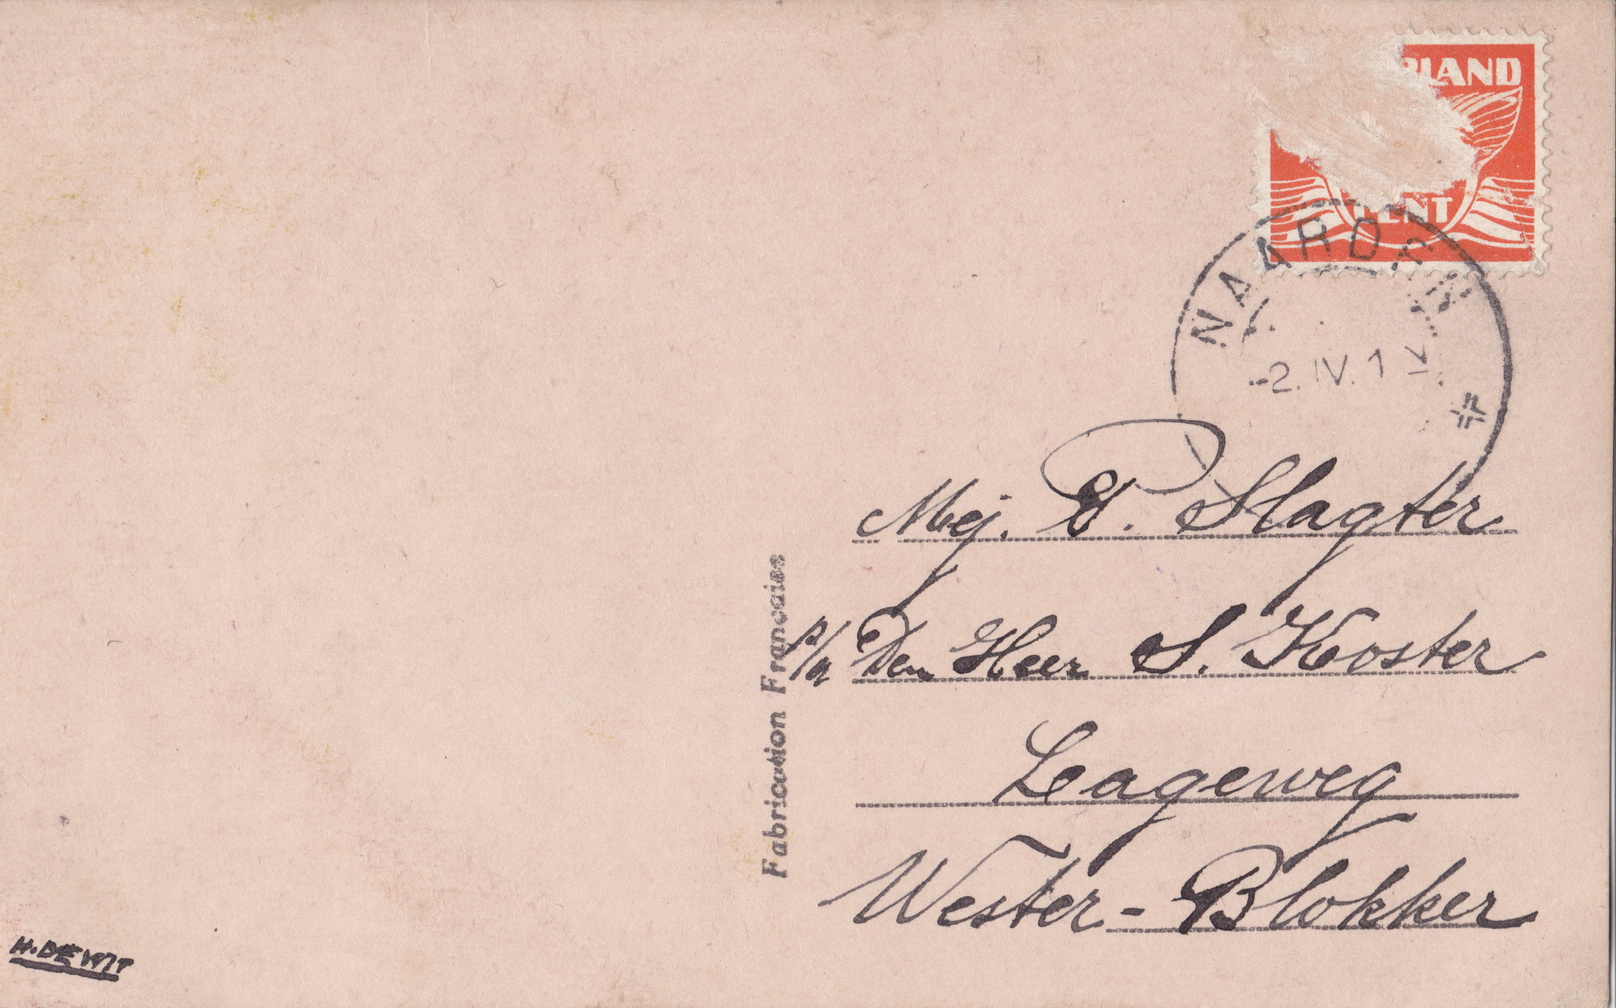 RLAND
CENT
NAARDEN
-2.IV.1
Mej. P. Slagter
p/a Den Heer S. Koster
Lageweg
Wester-Blokker
Fabrication Française
H. DE WIT